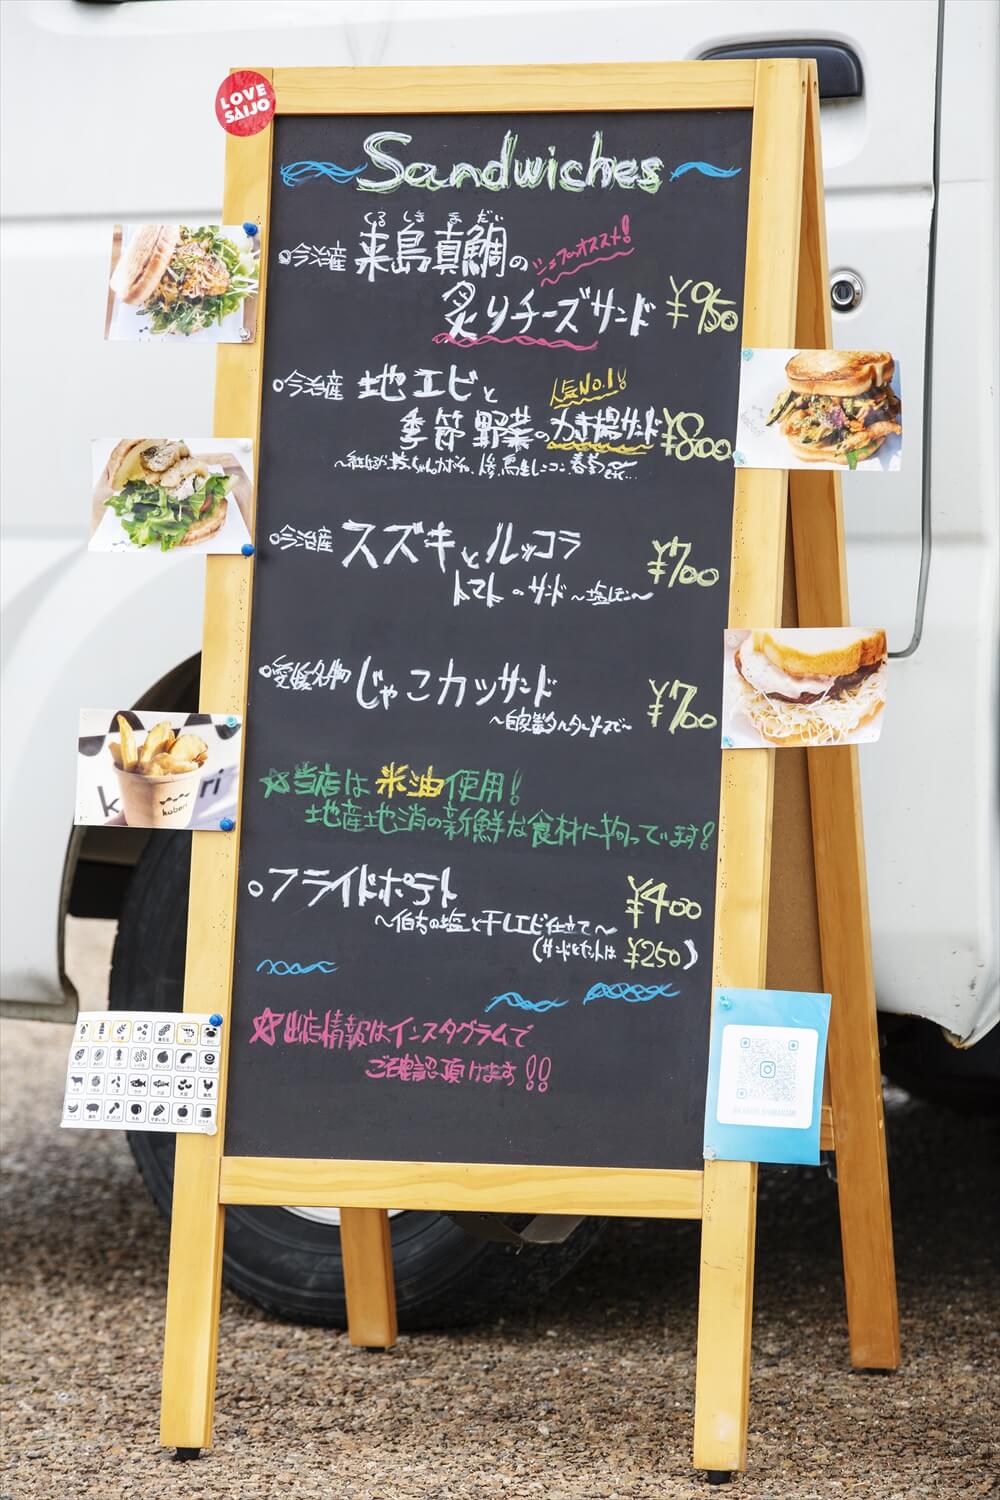 LOVE
SAIJO
Sandwiches
くるしままだい
○今治産 来島真鯛の
シェフのオススメ!
炙りチーズサンド ¥950
○今治産 地エビと
人気No.1!
季節野菜のかき揚サンド ¥800
○今治産 スズキとルッコラ
トマトのサンド ~塩レモン~ ¥700
○愛媛名物 じゃこカツサンド
~自家製タルタルソースで~ ¥700
☆当店は米油使用!
地産地消の新鮮な食材に拘っています!
○フライドポテト ¥400
~伯方の塩と干しエビ仕立て~
(サンドとセットは ¥250)
☆出店情報はインスタグラムで
ご確認頂けます!!
koberi